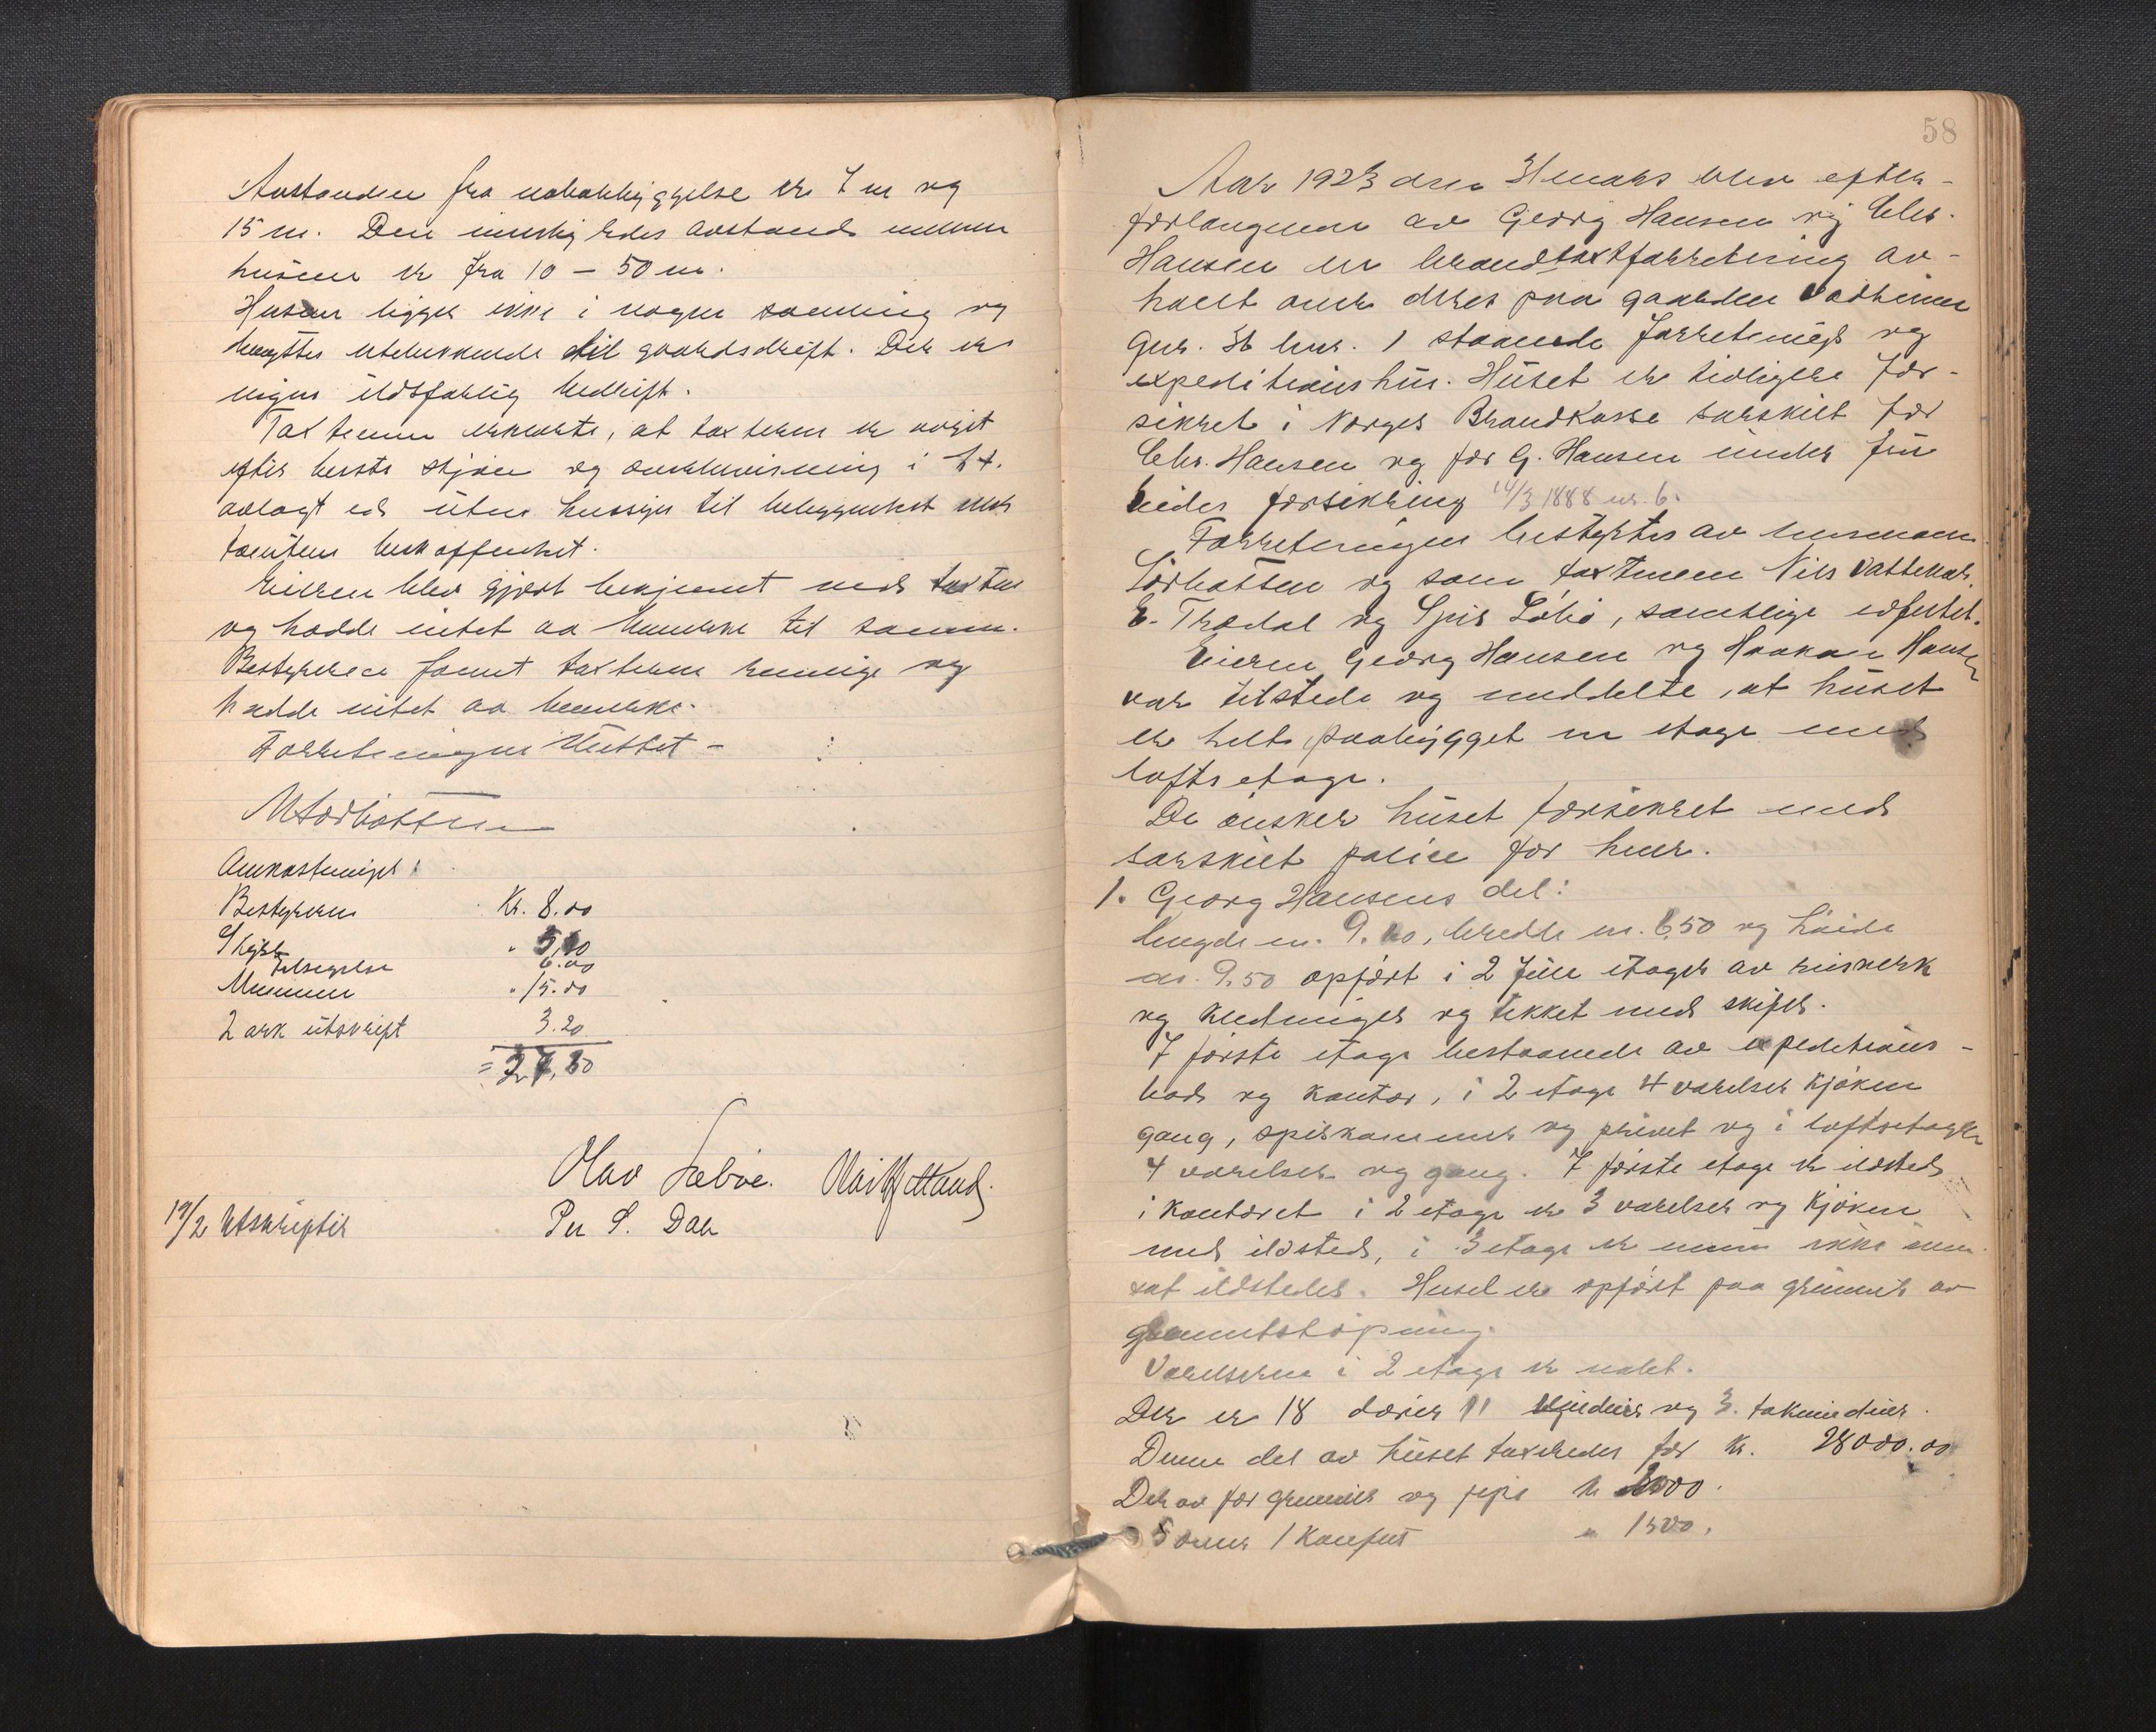 Avstanden fra nabobebyggelse er 7 m og
15 m. Den indbyrdes avstand mellem
husene er fra 10 – 50 m.
Husene ligger ikke i nogen samling og
benyttes utelukkende til gaardsdrift. Der er
ingen ildsfarlig bedrift.
Taxtmenn erklærte, at taxterne er avgit
efter beste skjøn og overbevisning i h.t.
avlagt ed uten hensyn til beliggenhet eller
tomtens beskaffenhet.
Eieren blev gjort bekjent med taxten
og hadde intet aa bemerke til samme.
Bestyreren fandt taxterne rimelige og
hadde intet aa bemerke.
Forretningen sluttet –
M Sørbotten
Omkostninger:
Bestyreren Kr. 8.00
Skyss " 5,10
Tilsigelse 6.00
Mennene " 15.00
2 ark utskrift 3.20
= 37,30
Olav Sæbøe.
Per S. Dale
19/2 Utskrifter
58
Aar 1923 den 3 mars blev efter-
forlangende av Georg Hansen og Chr.
Hansen en brandtaxtforretning av-
holdt over deres paa gaarden Vadheim
gnr. 36 bnr. 1 staaende forretnings og
expeditionshus. Huset er tidligere for-
sikret i Norges Brandkasse særskilt for
Chr. Hansen og for G. Hansen under
forsikring 14/3 1888 nr. 6.
Forretningen bestyrtes av lensmann
Sørbotten og som taxtmenn Nils Vattekar,
E. Trædal og Sjur Sæbø, samtlige edfestet.
Eieren Georg Hansen og Haakon Hansen
var tilstede og meddelte, at huset
er helt paabygget en etage med
loftsetage.
De ønsker huset forsikret med
særskilt police for hver.
1. Georg Hansens del:
lengde m. 9.60, bredde m. 6,50 og høide
m. 9,50 opført i 2 fulle etager av
og kledninger og tekket med skifer.
I første etage bestaaende av expeditions-
bod og kontor, i 2 etage 4 værelser kjøken
gang, spiskammer og privet og i loftsetagen
4 værelser og gang. I første etage er ildsted
i kontoret i 2 etage er 3 værelser og kjøken
med ildsted, i 3 etage er ennu ikke inn-
sat ildsteder. Huset er opført paa grunnmur av
Værelserne i 2 etage er malet.
Der er 18 dører 11 vinduer og 3 takvinduer.
Denne del av huset taxeredes for Kr. 28000.00
Derav for grunmur og pipe kr 2000.
5 ovner 1 komfur " 1500.